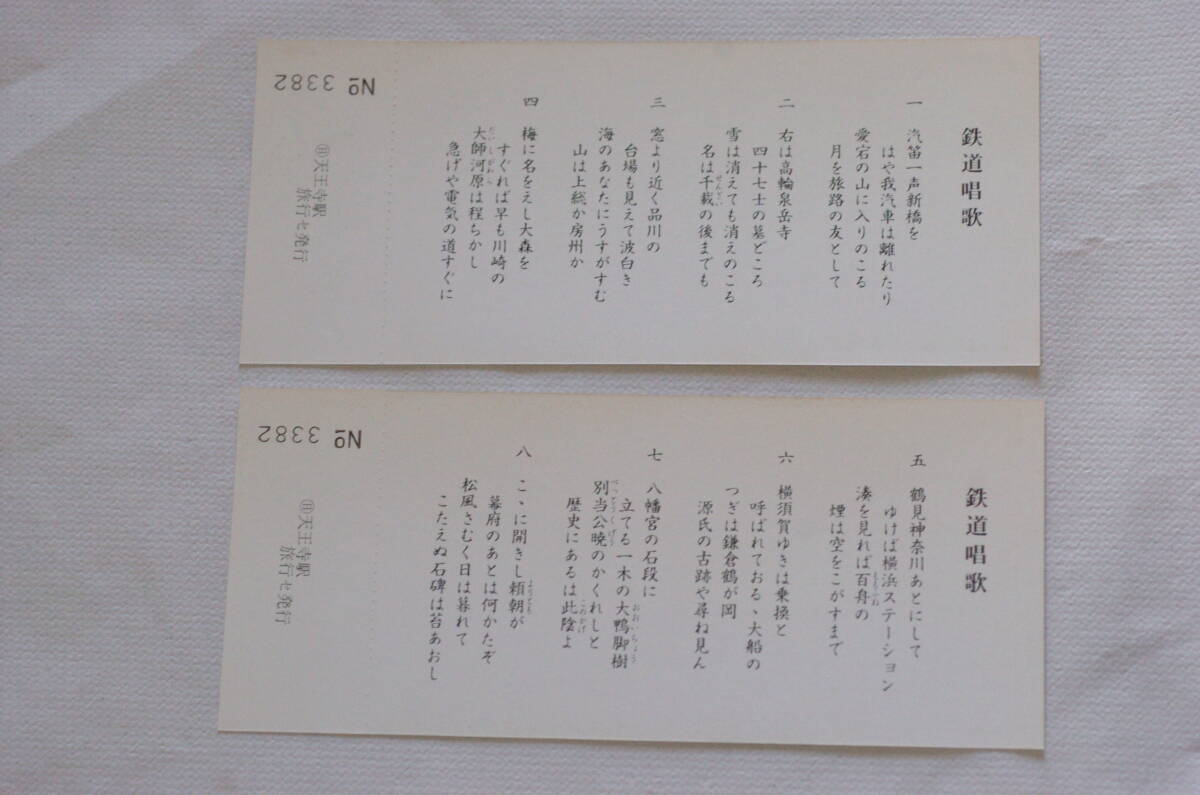 鉄道唱歌
一 汽笛一声新橋を
はや我汽車は離れたり
愛宕の山に入りのこる
月を旅路の友として
二 右は高輪泉岳寺
四十七士の墓どころ
雪は消えても消えのこる
名は千載の後までも
せんざい
三 窓より近く品川の
台場も見えて波白き
海のあなたにうすがすむ
山は上総か房州か
四 梅に名をえし大森を
すぐれば早も川崎の
大師河原は程ちかし
だいしがわら
急げや電気の道すぐに
№ 3382
㊐天王寺駅
旅行セ発行
鉄道唱歌
五 鶴見神奈川あとにして
ゆけば横浜ステーション
湊を見れば百舟の
ももふね
煙は空をこがすまで
六 横須賀ゆきは乗換と
呼ばれておるゝ大船の
つぎは鎌倉鶴が岡
源氏の古跡や尋ね見ん
七 八幡宮の石段に
立てる一木の大鴨脚樹
おおいちょう
別当公暁のかくれしと
べっとうくぎょう
歴史にあるは此陰よ
このかげ
八 こゝに開きし頼朝が
よりとも
幕府のあとは何かたぞ
松風さむく日は暮れて
こたえぬ石碑は苔あおし
№ 3382
㊐天王寺駅
旅行セ発行